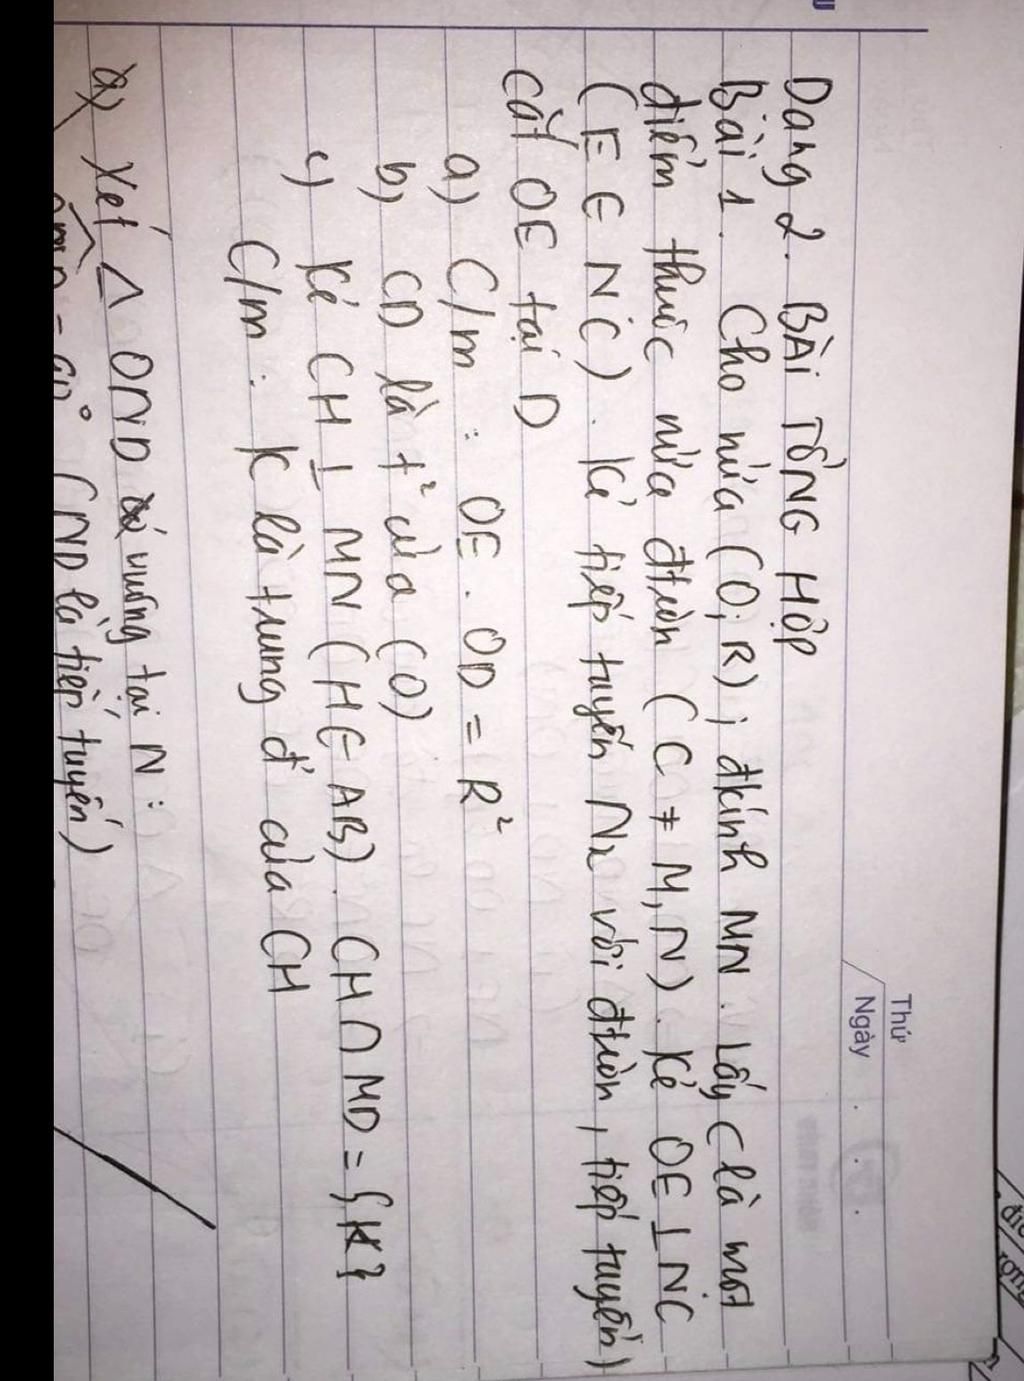 Thứ
Ngày
Dạng 2. BÀI TỔNG HỢP
Bài 1. Cho nửa (O; R); đkính MN. Lấy C là một
điểm thuộc nửa đtròn (C ≠ M, N). Kẻ OE ⊥ NC
(E ∈ NC). Kẻ tiếp tuyến Nx với đtròn, tiếp tuyến
cắt OE tại D
a) C/m: OE. OD = R²
b) CD là t² của (O)
c) Kẻ CH ⊥ MN (H ∈ AB). CH ∩ MD = {K}
C/m: K là trung đ' của CH
a) Xét Δ OND vuông tại N:
= 90° (ND là tiếp tuyến)